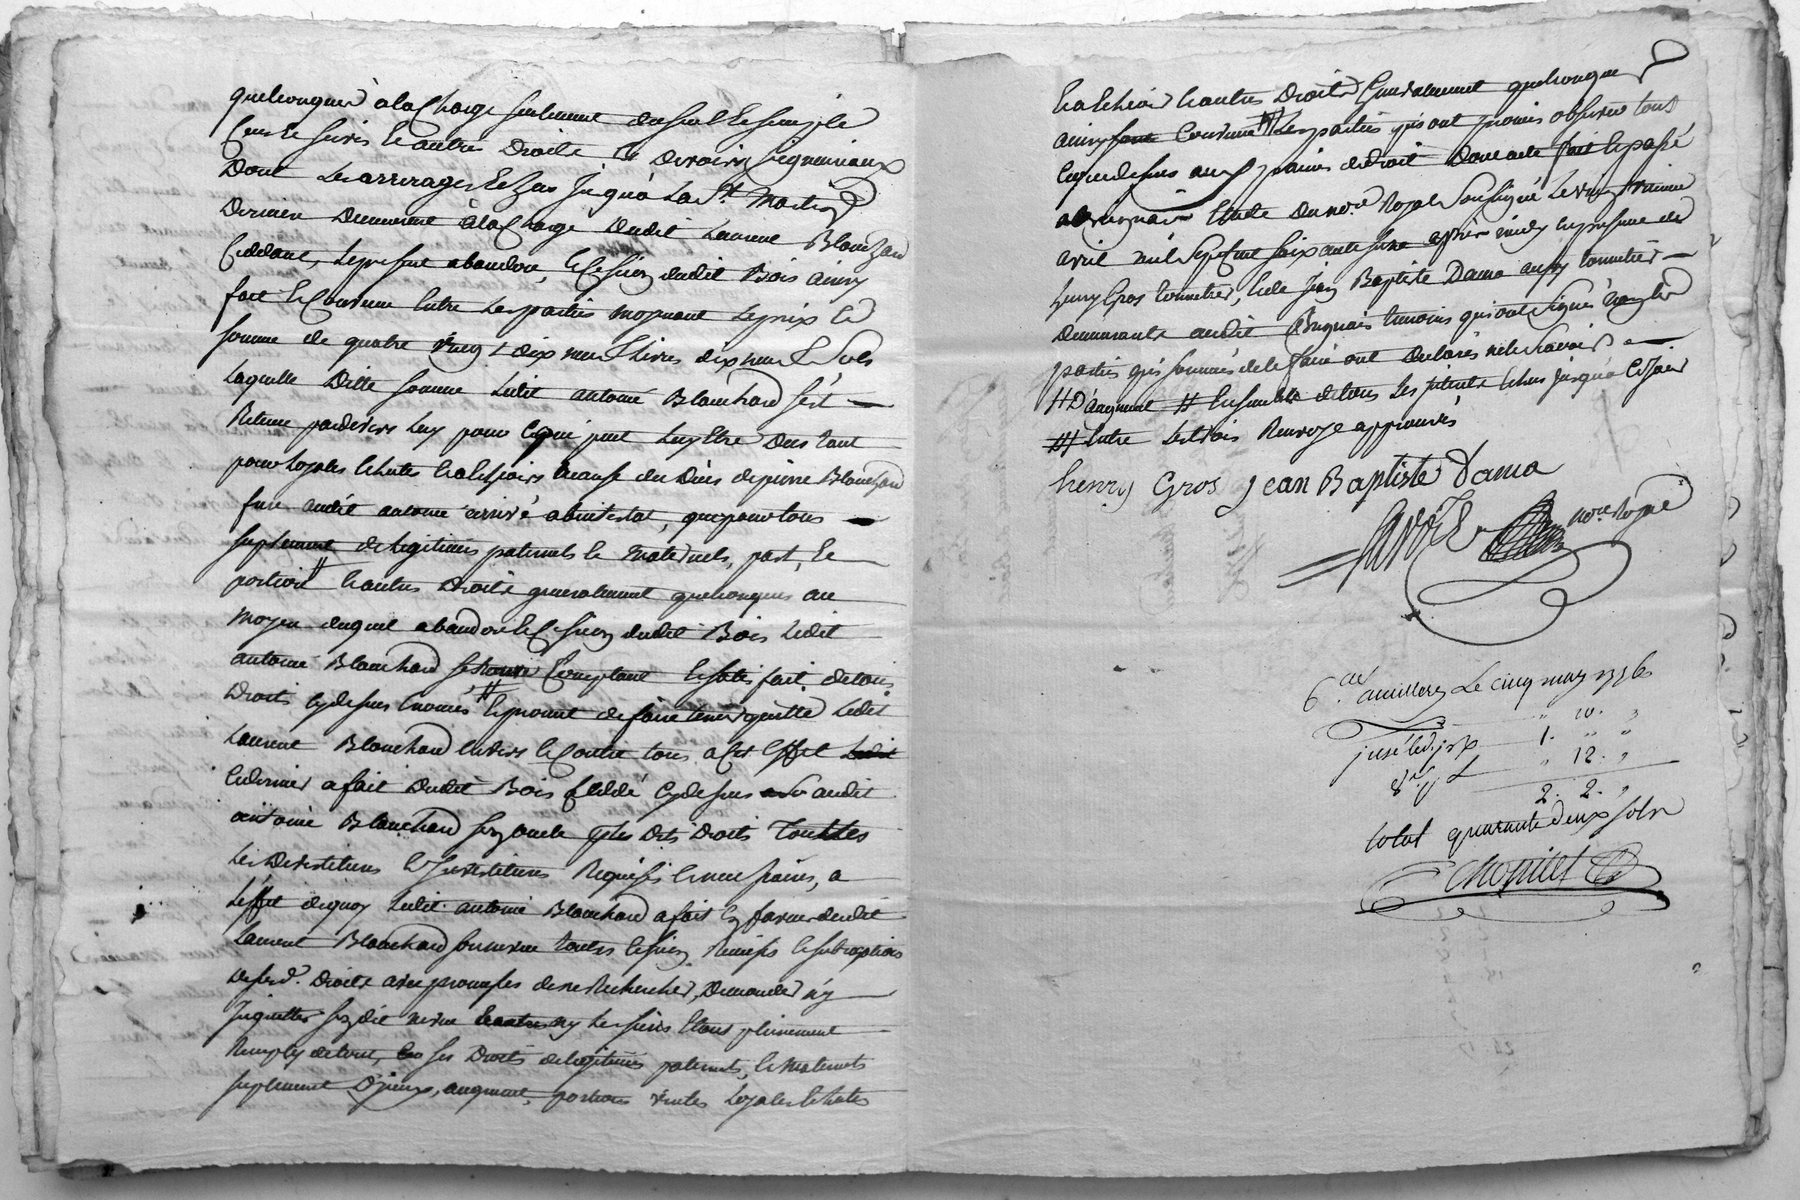 quelconques à la Charge seulement dusol Le simple
Cens Le servis Et autres Droits Et devoirs seigneuriaux
Dont Les arrerages Echus Jusqu'a La St Martin
Derniere Demeurent à la Charge dudit Laurent Blanchard
Ceddant, Le present abandon, Et Cession dudit Bois ainsy
fait Et Convenu Entre Les parties moyenant Le prix Et
somme de quatre vingt dix neuf Livres dix neuf Sols
Laquelle Ditte somme Ledit antoine Blanchard s'est
Retenu pardevers Luy pour Ce qui peut Luy Etre Deus tant
pour Loyales Echutes Ecalchoirs acause du Décès de pierre Blanchard
frere audit antoine arrivé abintestat, que pour tous
suplement de Legitimes paternels Et Maternels, part, Et
portion # Et autres Droits generalement quelconques au
Moyen duquel abandon Et Cession dudit Bois Ledit
antoine Blanchard se trouve Comptant Et satisfait de tous
Droits Cydessus Enoncés # Et promet de faire tenir quitte Ledit
Laurent Blanchard Envers Et Contre tous a Cet Effet
Ce dernier a fait dudit Bois Ceddé Cydessus audit
antoine Blanchard son oncle ses Dts Droits touttes
Les Devestitures Et Investitures Requises Et necessaires, a
L'effet dequoy Ledit antoine Blanchard a fait En faveur dudit
Laurent Blanchard son neveu toutes Cession Remises Et subrogations
de sesd. Droits avec promesses de ne Rechercher, Demander ny
Inquietter son dit neveu ny Les siens Etant pleinement
Remply de tous, ses Droits de Legitimes paternels, Et Maternels
suplement D'yceux, augment, portions viriles Loyales Echutes
Ecalchoirs Et autres Droits Generalement quelconques
ainsy Convenu ## Les parties qui ont promis observer tout
Ce que dessus aux peines de droit Dont acte fait Et passé
a Brignais Etude du nore Royal Soussigné Le vingt
avril mil sept cent soixante seize après midy En presence de
henry Gros tonnelier, Et de Jean Baptiste Dama aussy tonnelier
Demeurants audit Brignais temoins qui ont signés non Les
parties qui sommées de le faire ont Declarés ne le savoir
# D'augment # Ensemble de tous Les interets Echus jusqu'a Ce jour
### Entre Les trois Renvoys approuvés
henry Gros Jean Baptiste Dama
nore Royal
6. Le cinq may 1776
" 10. "
1. " "
" 12. "
2. 2. "
total quarante deux sols